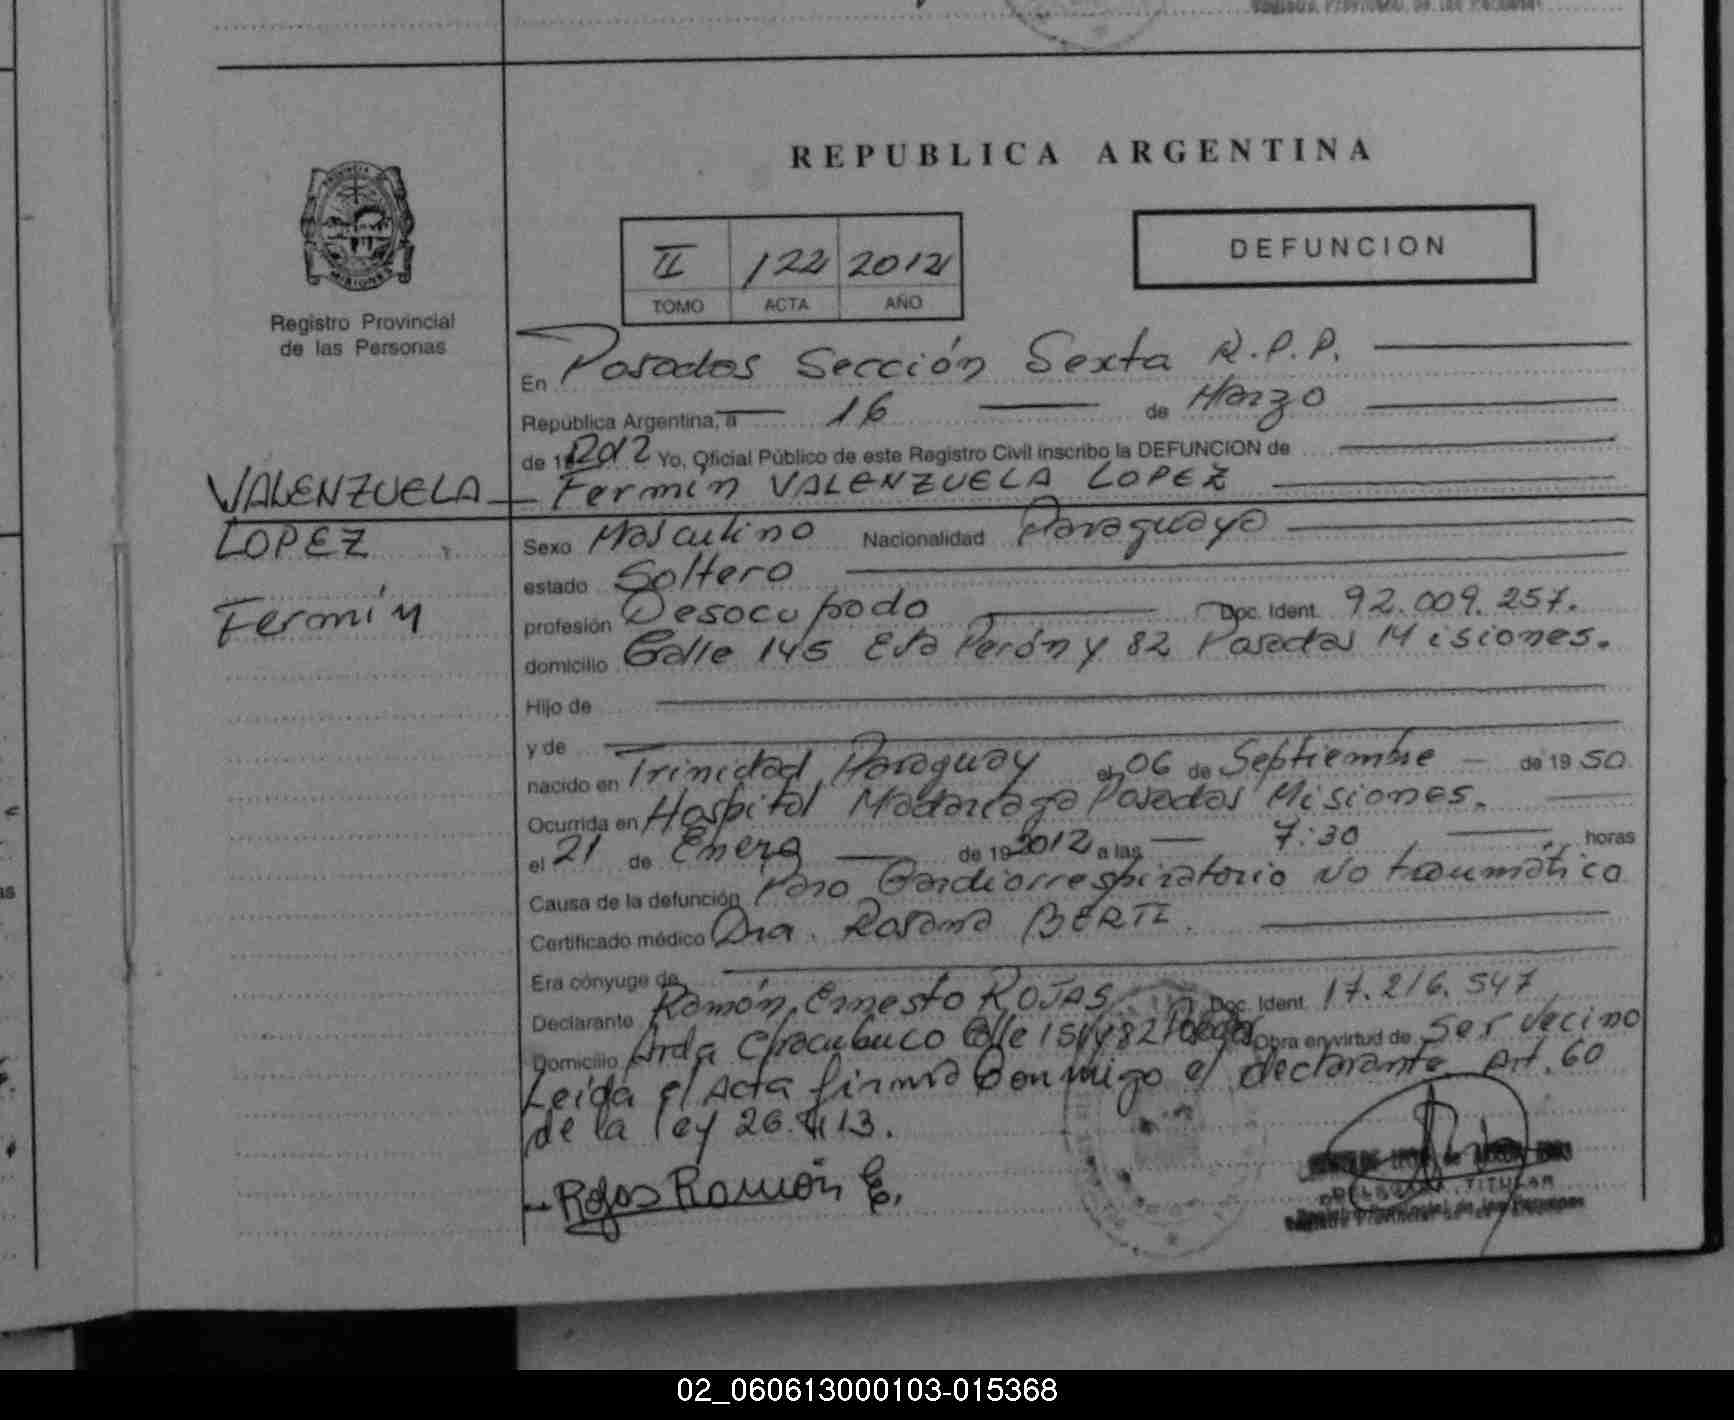 Registro Provincial de las Personas
REPUBLICA ARGENTINA
PROVINCIA
MISIONES
II 122 2012
TOMO ACTA AÑO
DEFUNCION
Registro Provincial
de las Personas
En Posadas Sección Sexta R.P.P.
República Argentina, a 16 de Marzo
de 19 2012 Yo, Oficial Público de este Registro Civil inscribo la DEFUNCION de
VALENZUELA
LOPEZ
Fermín
Fermín VALENZUELA LOPEZ
Sexo Masculino Nacionalidad Paraguaya
estado Soltero
profesión Desocupado Doc. Ident. 92.009.257.
domicilio Calle 145 Eva Perón y 82 Posadas Misiones.
Hijo de
y de
nacido en Trinidad Paraguay el 06 de Septiembre de 19 50
Ocurrida en Hospital Madariaga Posadas Misiones.
el 21 de Enero de 19 2012 a las 7:30 horas
Causa de la defunción Paro Cardiorrespiratorio No traumático
Certificado médico Dra. Rosana BERTI.
Era cónyuge de
Declarante Ramón Ernesto ROJAS Doc. Ident. 17.216.547
Domicilio Avda Chacabuco Calle 151 y 82 Posadas Obra en virtud de Ser vecino
Leída el Acta firma Conmigo el declarante Art. 60
de la ley 26.413.
Rojas Ramón E.
DELEGADA TITULAR
Registro Provincial de las Personas
02_060613000103-015368